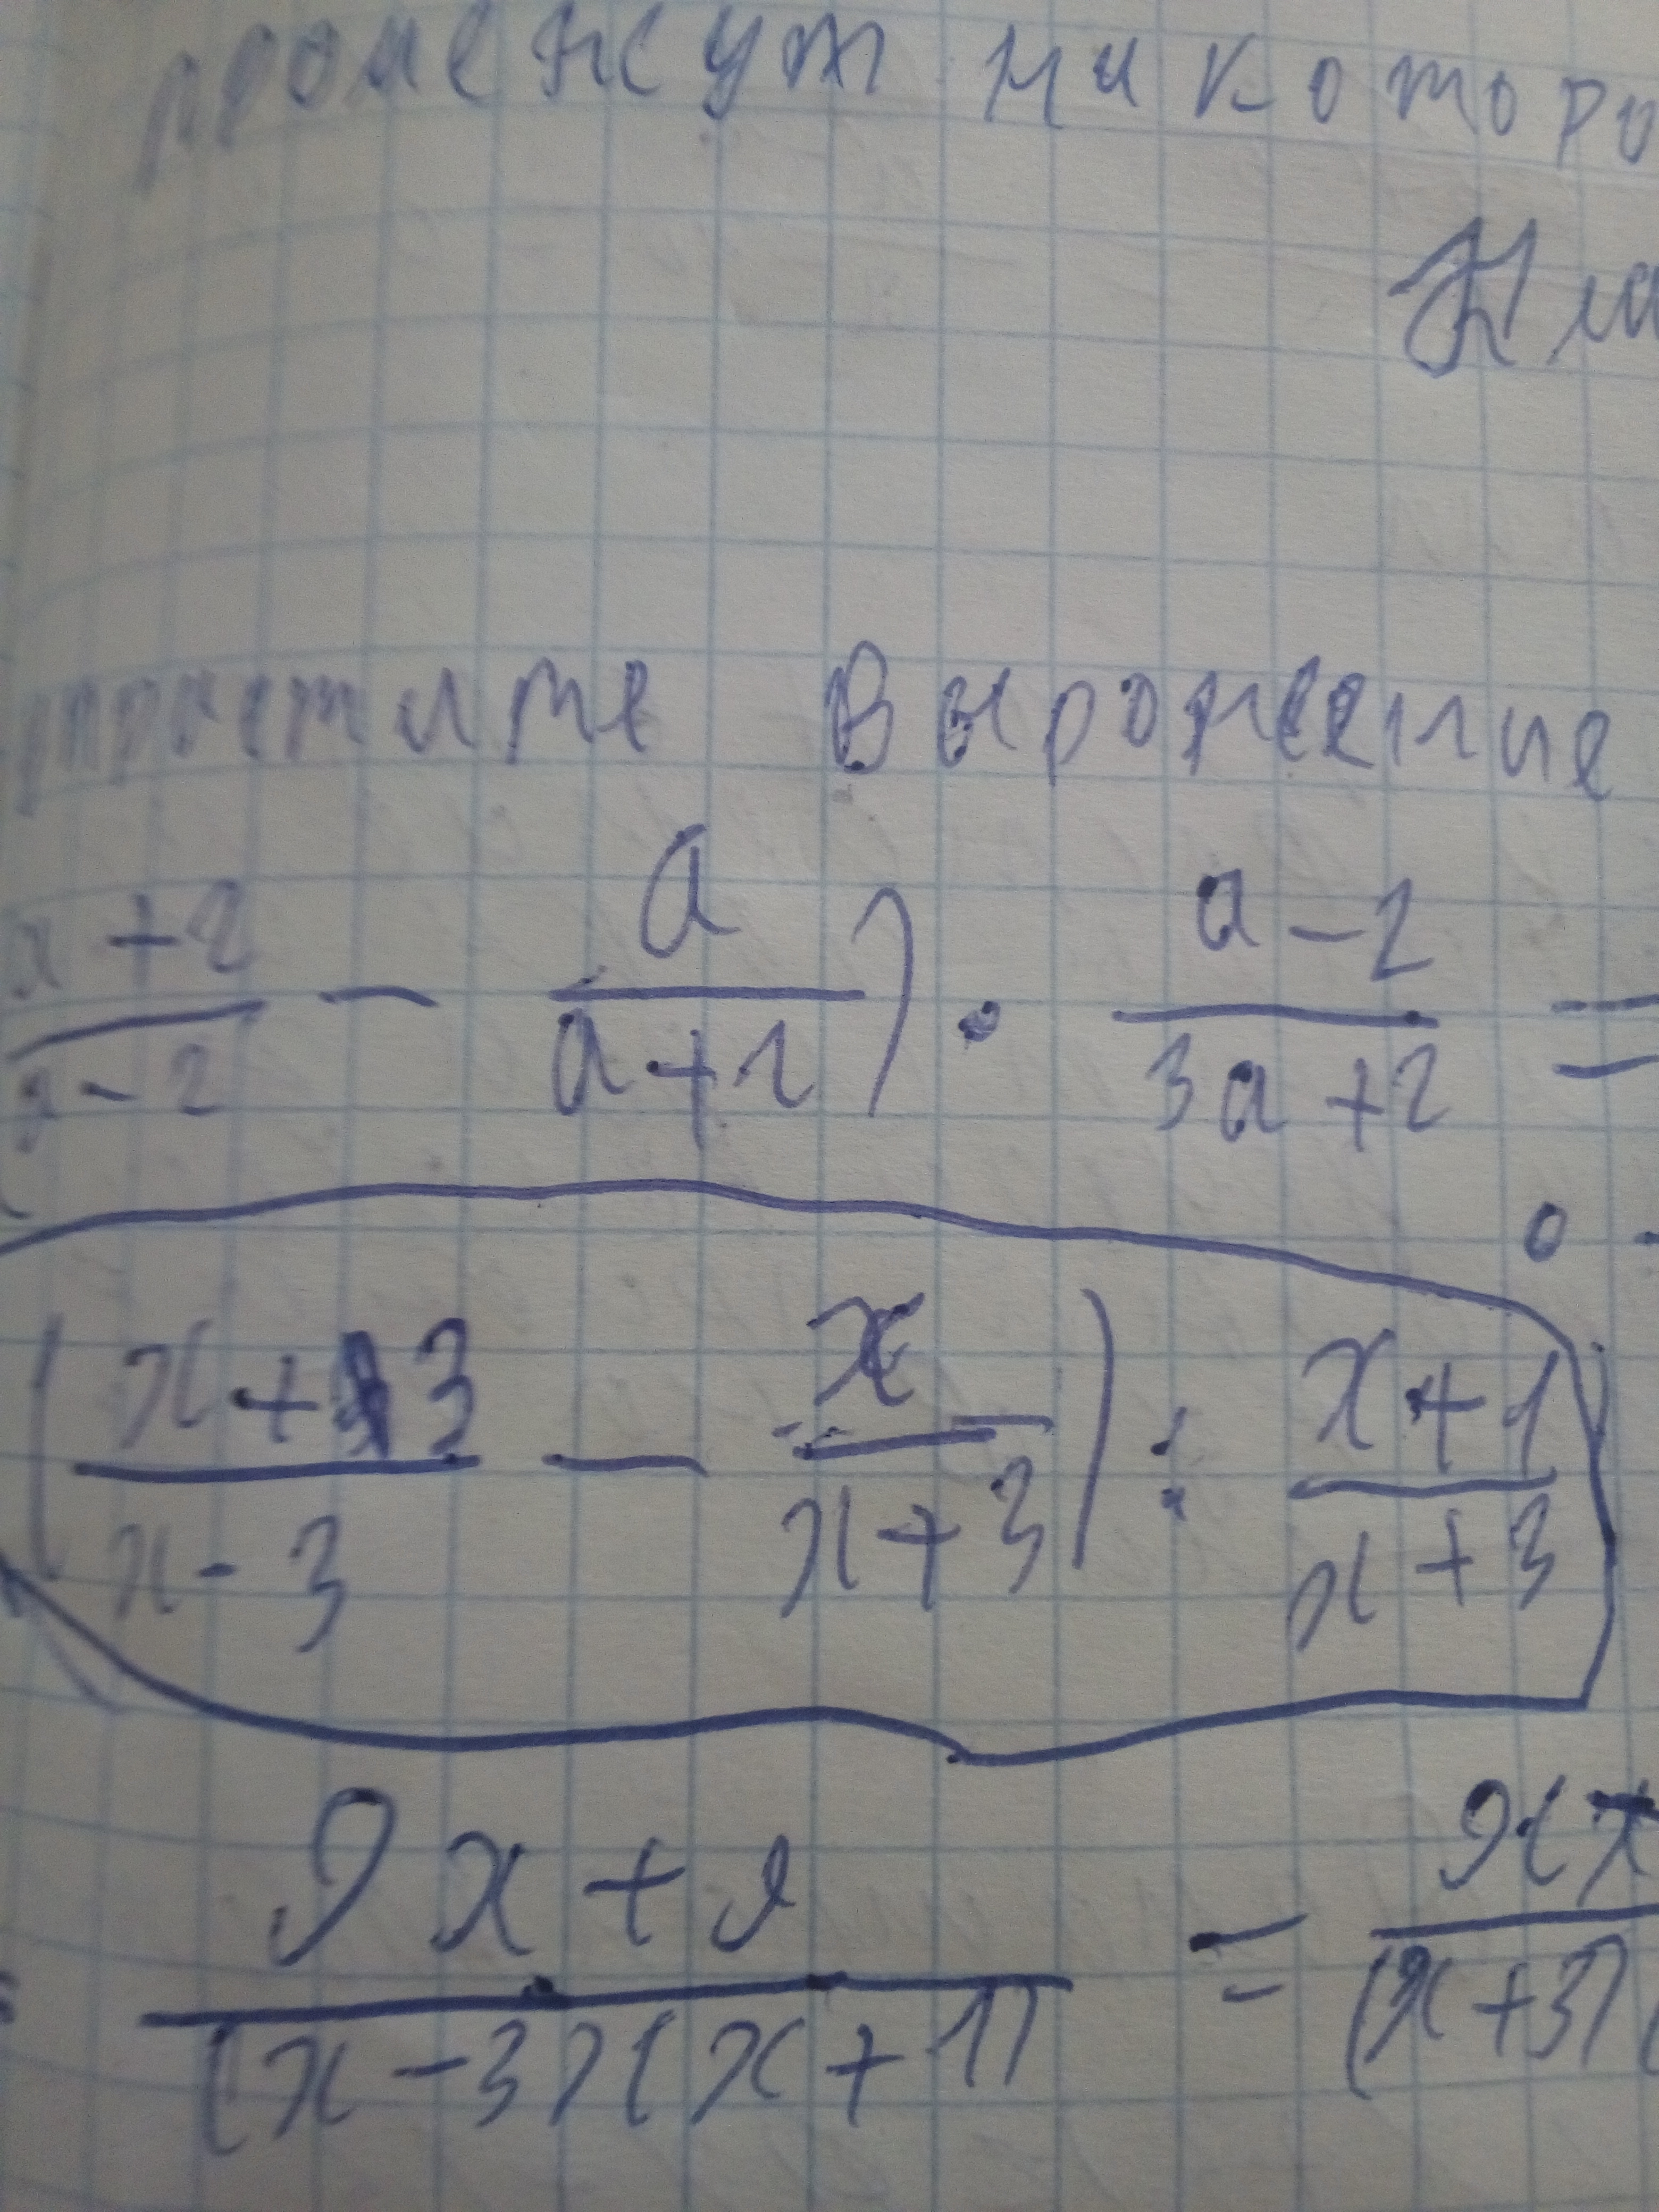 промежут на которо
упростите выроженние
x+2/a-2 - a/a+2) · a-2/3a+2 =
(x+3/x-3 - x/x+3) : x+1/x+3
9x+9/(x-3)(x+1) =